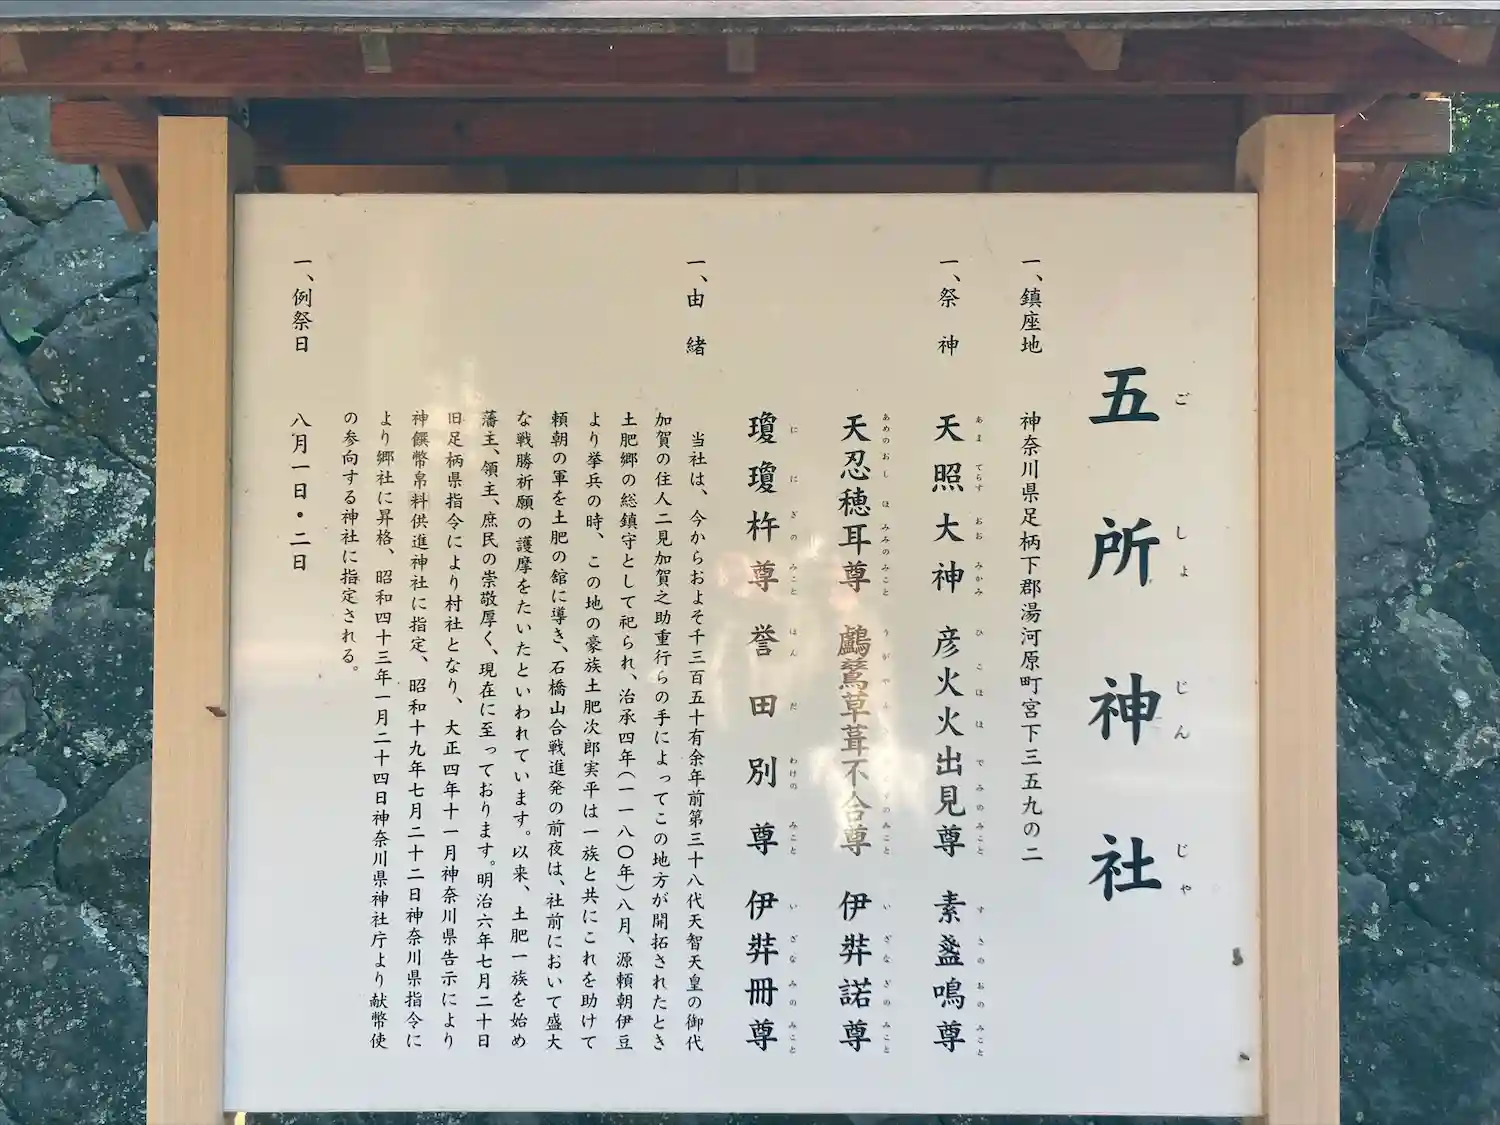 五所神社
ごしょじんじゃ
一、鎮座地　神奈川県足柄下郡湯河原町宮下三五九の二
一、祭　神　天照大神　彦火火出見尊　素盞鳴尊
あまてらすおおみかみ　ひこほほでみのみこと　すさのおのみこと
天忍穂耳尊　鸕鶿草葺不合尊　伊弉諾尊
あめのおしほみみのみこと　いざなぎのみこと
瓊瓊杵尊　誉田別尊　伊弉冊尊
ににぎのみこと　ほんだわけのみこと　いざなみのみこと
一、由　緒　当社は、今からおよそ千三百五十有余年前第三十八代天智天皇の御代
加賀の住人二見加賀之助重行らの手によってこの地方が開拓されたとき
土肥郷の総鎮守として祀られ、治承四年(一一八〇年)八月、源頼朝伊豆
より挙兵の時、この地の豪族土肥次郎実平は一族と共にこれを助けて
頼朝の軍を土肥の館に導き、石橋山合戦進発の前夜は、社前において盛大
な戦勝祈願の護摩をたいたといわれています。以来、土肥一族を始め
藩主、領主、庶民の崇敬厚く、現在に至っております。明治六年七月二十日
旧足柄県指令により村社となり、大正四年十一月神奈川県告示により
神饌幣帛料供進神社に指定、昭和十九年七月二十二日神奈川県指令に
より郷社に昇格、昭和四十三年一月二十四日神奈川県神社庁より献幣使
の参向する神社に指定される。
一、例祭日　八月一日・二日